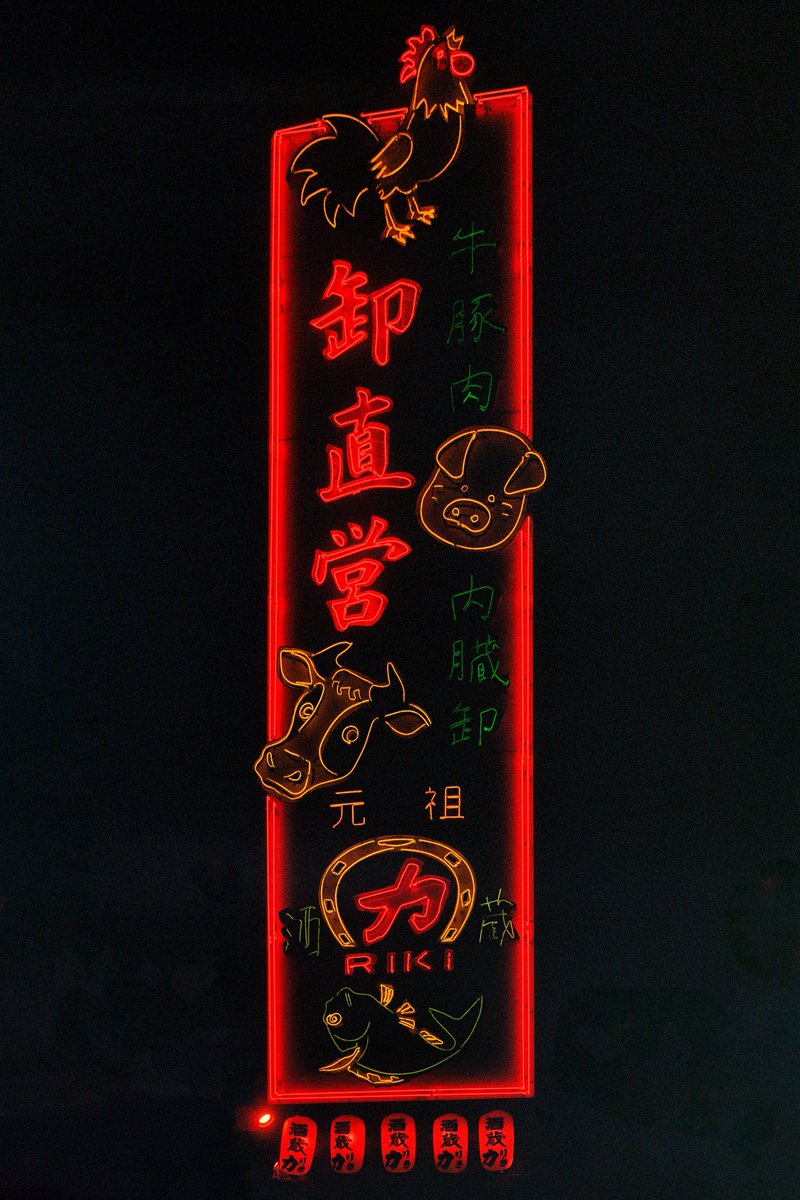 牛豚肉
内臓卸
卸直営
元祖
力
酒蔵
RIKI
酒蔵力
酒蔵力
酒蔵力
酒蔵力
酒蔵力